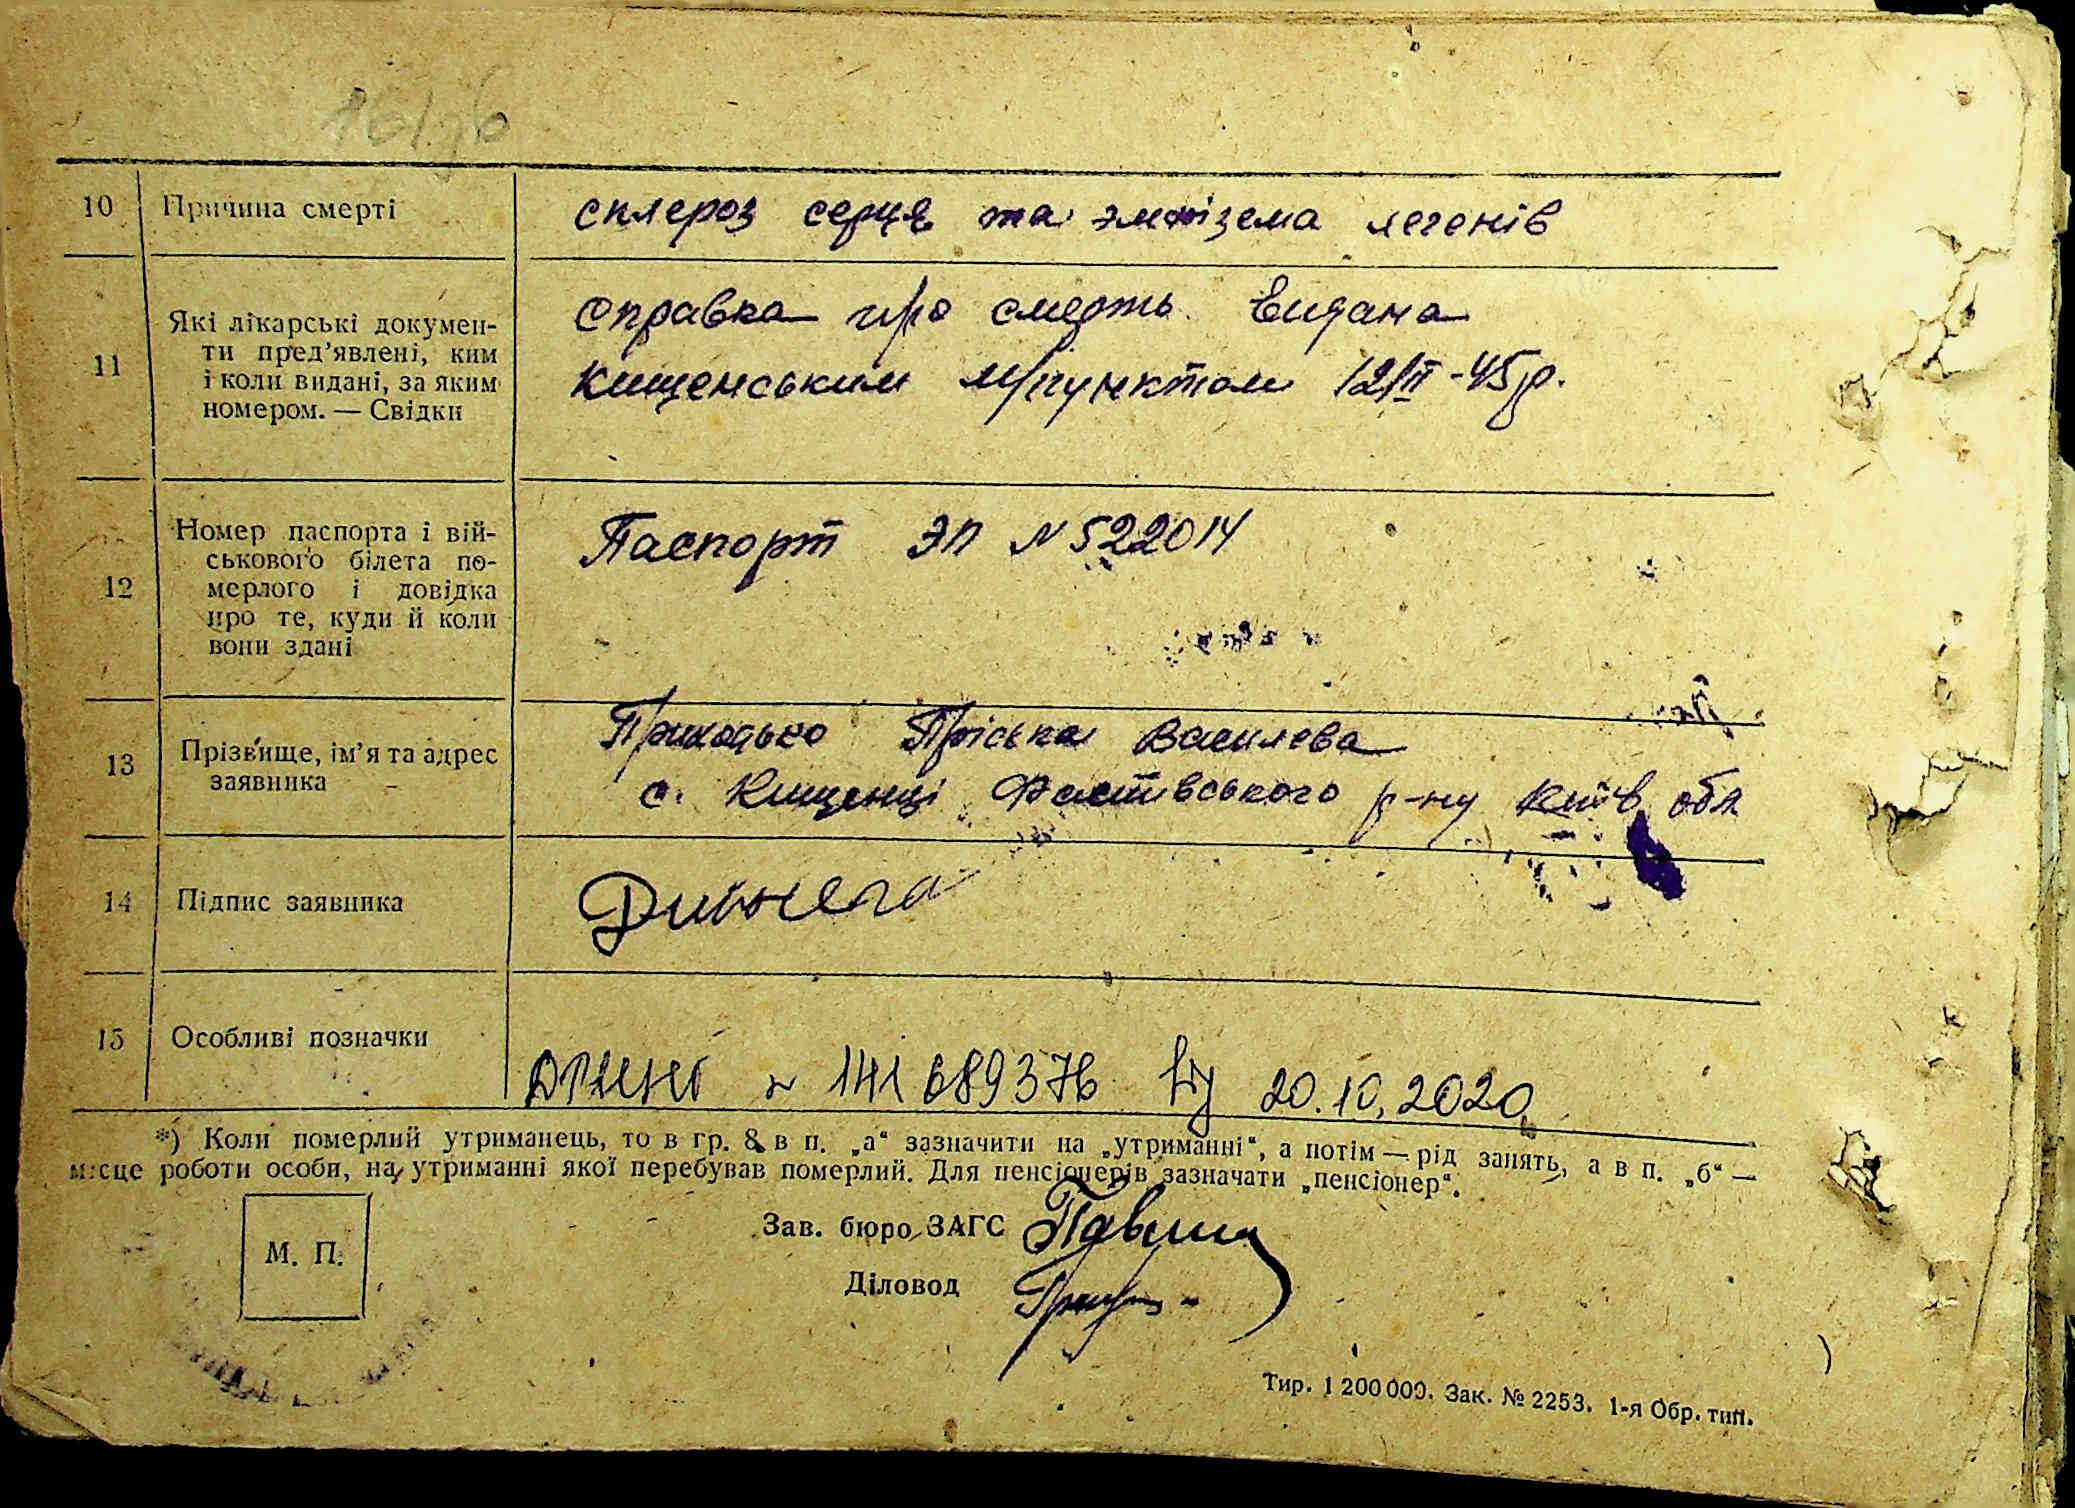 10 Причина смерті склероз серця та эмфізема легенів
11 Які лікарські докумен-
ти пред’явлені, ким
і коли видані, за яким
номером. — Свідки
справка про смерть. Видана
Кищенським м/пунктом 12/II-45р.
12 Номер паспорта і вій-
ськового білета по-
мерлого і довідка
про те, куди й коли
вони здані
Паспорт ЭП № 522014
13 Прізвище, ім’я та адрес
заявника
Приходько Пріська Василева
с. Кищенці р-ну Київ обл
14 Підпис заявника
15 Особливі позначки
N 141689376 від 20.10.2020
*) Коли померлий утриманець, то в гр. 8 в п. „а“ зазначити на „утриманні“, а потім — рід занять, а в п. „б“ —
місце роботи особи, на утриманні якої перебував померлий. Для пенсіонерів зазначати „пенсіонер“.
М. П.
Зав. бюро ЗАГС
Діловод
Тир. 1 200 000. Зак. № 2253. 1-я Обр. тип.